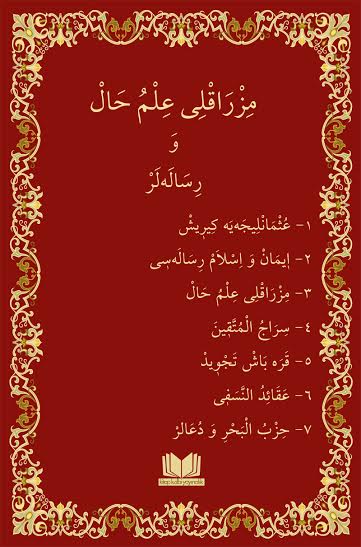 مِزْرَاقْلِى عِلْمُ حَالْ
وَ
رِسَالَه‌لَرْ
١- عُثْمَانْلِيجَه‌يَه كِيرِيشْ
٢- اِيمَانْ وَ اِسْلاَمْ رِسَالَه‌سِى
٣- مِزْرَاقْلِى عِلْمُ حَالْ
٤- سِرَاجُ الْمُتَّقِينَ
٥- قَرَه بَاشْ تَجْوِيدْ
٦- عَقَائِدُ النَّسَفِى
٧- حِزْبُ الْبَحْرِ وَ دُعَالَرْ
kitap kalbi yayıncılık